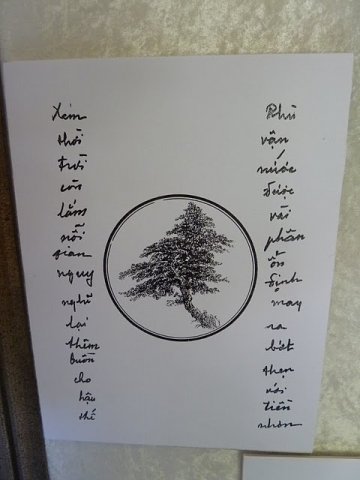 Xem
thời
trời
còn
lắm
nỗi
gian
nguy
nghĩ
lại
thêm
buồn
cho
hậu
thế
Phù
vận
nước
được
vài
phần
ổn
định
may
ra
bớt
thẹn
với
tiền
nhơn